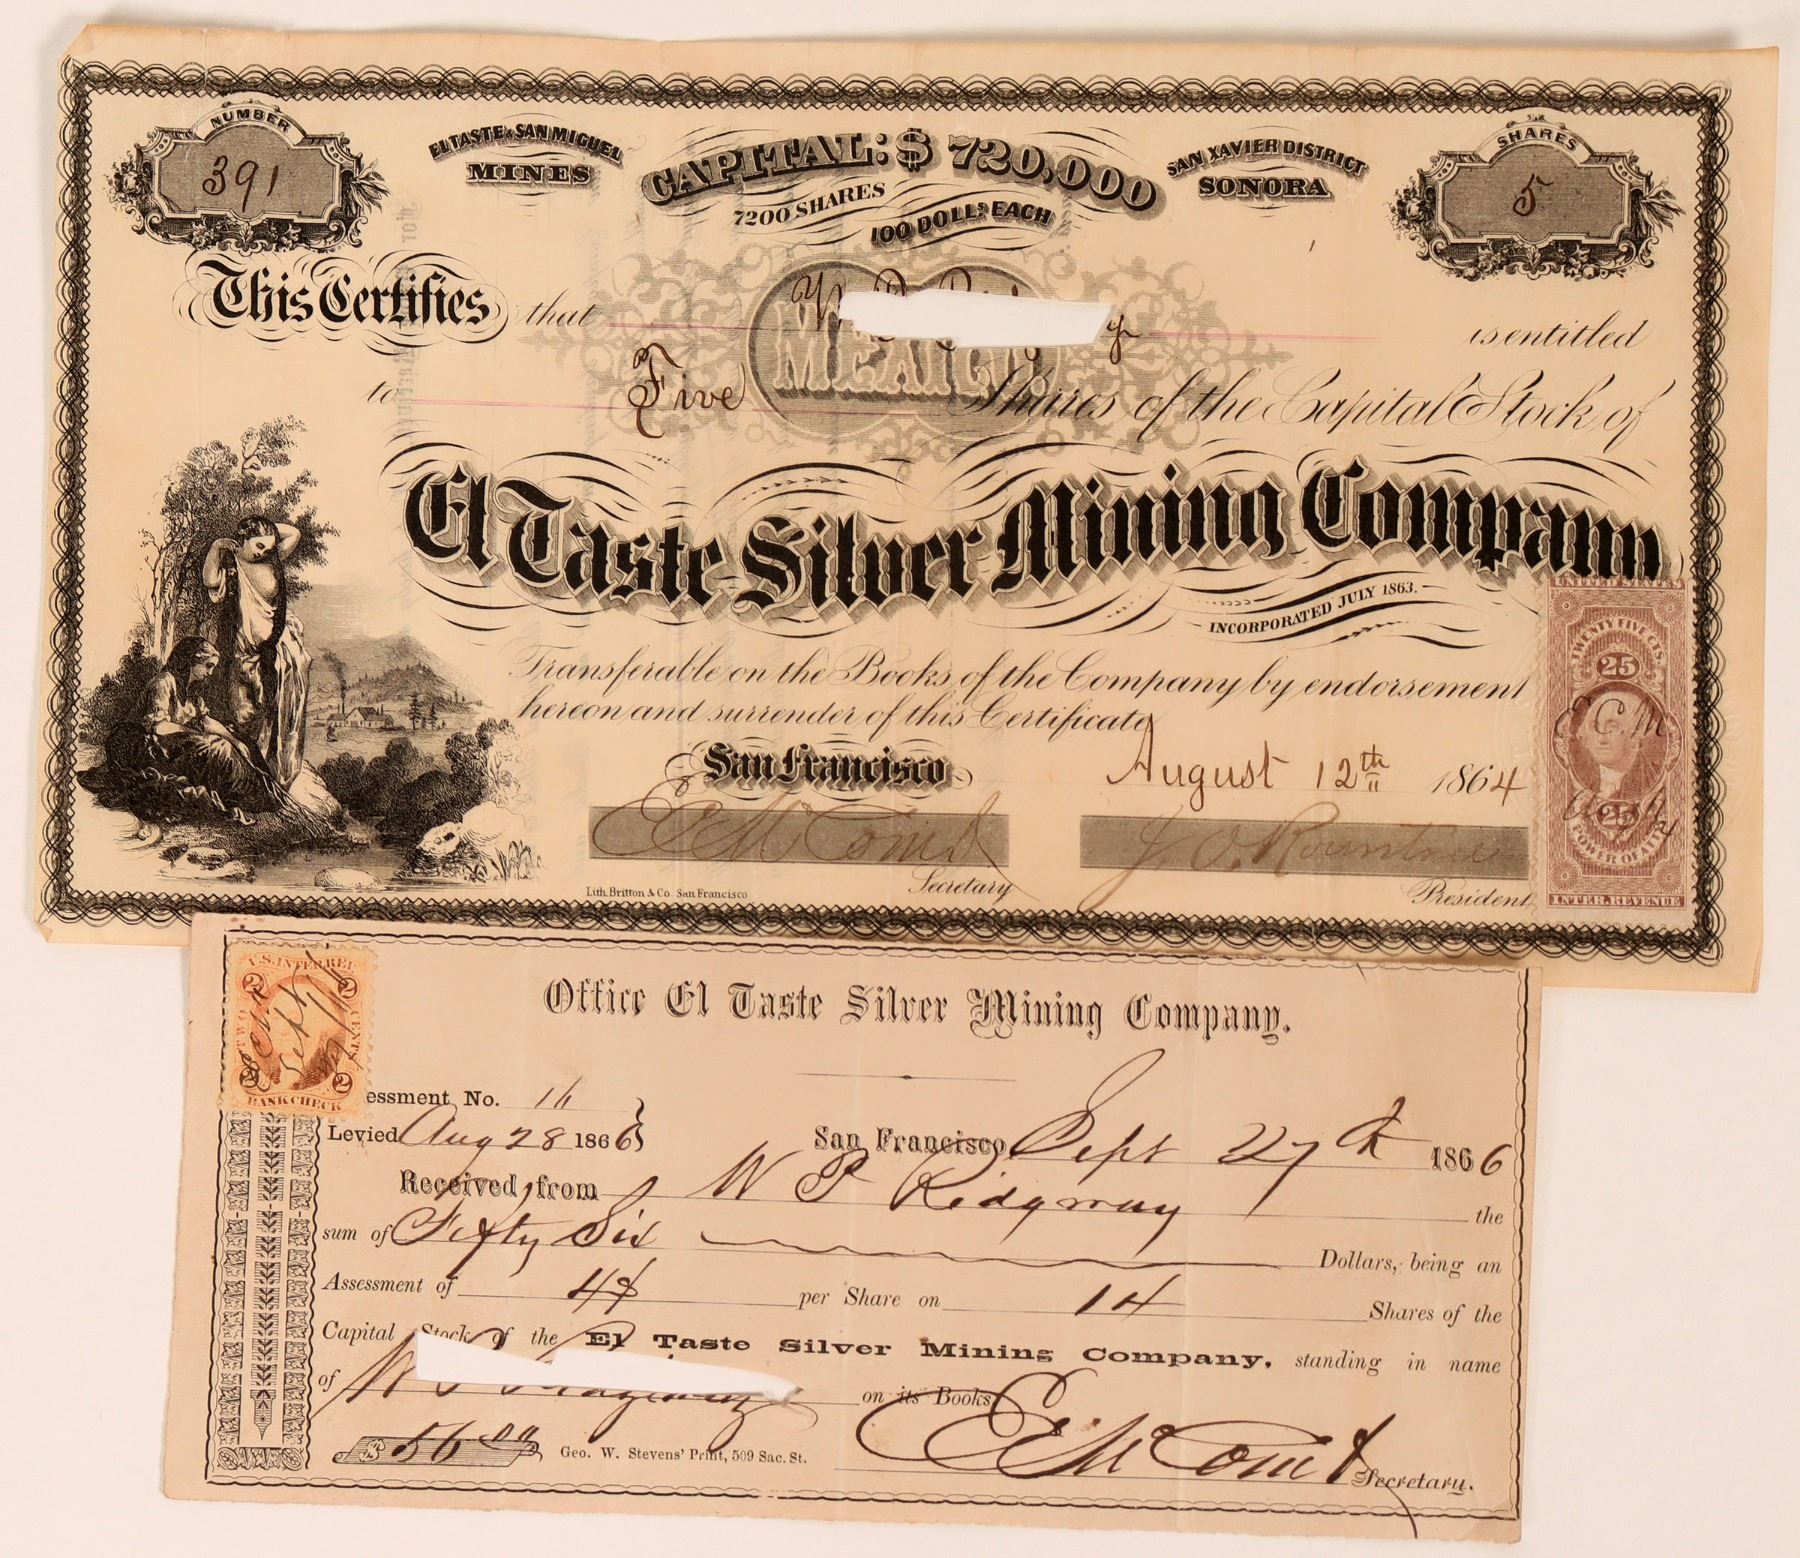 NUMBER
391
EL TASTE & SAN MIGUEL
MINES
CAPITAL: $ 720,000
7200 SHARES
100 DOLLS EACH
SAN XAVIER DISTRICT
SONORA
SHARES
5
This Certifies that is entitled
MEXICO
to Five Shares of the Capital Stock of
El Taste Silver Mining Company
INCORPORATED JULY 1863.
Transferable on the Books of the Company by endorsement
hereon and surrender of this Certificate
San Francisco August 12th 1864
E M Comd J. O. Rountree
Secretary President
Lith. Britton & Co. San Francisco
UNITED STATES
TWENTY FIVE CTS.
25
E. C. M
25
POWER OF ATTY
INTER. REVENUE
U.S. INTER. REV.
2 2
TWO CENTS
Sept
2 2
BANK CHECK
Office El Taste Silver Mining Company.
essment No. 16
Levied Aug 28 1866
San Francisco Sept 27th 1866
Received from W P Ridgway the
sum of Fifty Six Dollars, being an
Assessment of 4$ per Share on 14 Shares of the
Capital Stock of the El Taste Silver Mining Company, standing in name
of W P Ridgway on its Books
$ 56.00 Geo. W. Stevens' Print, 509 Sac. St.
Secretary.